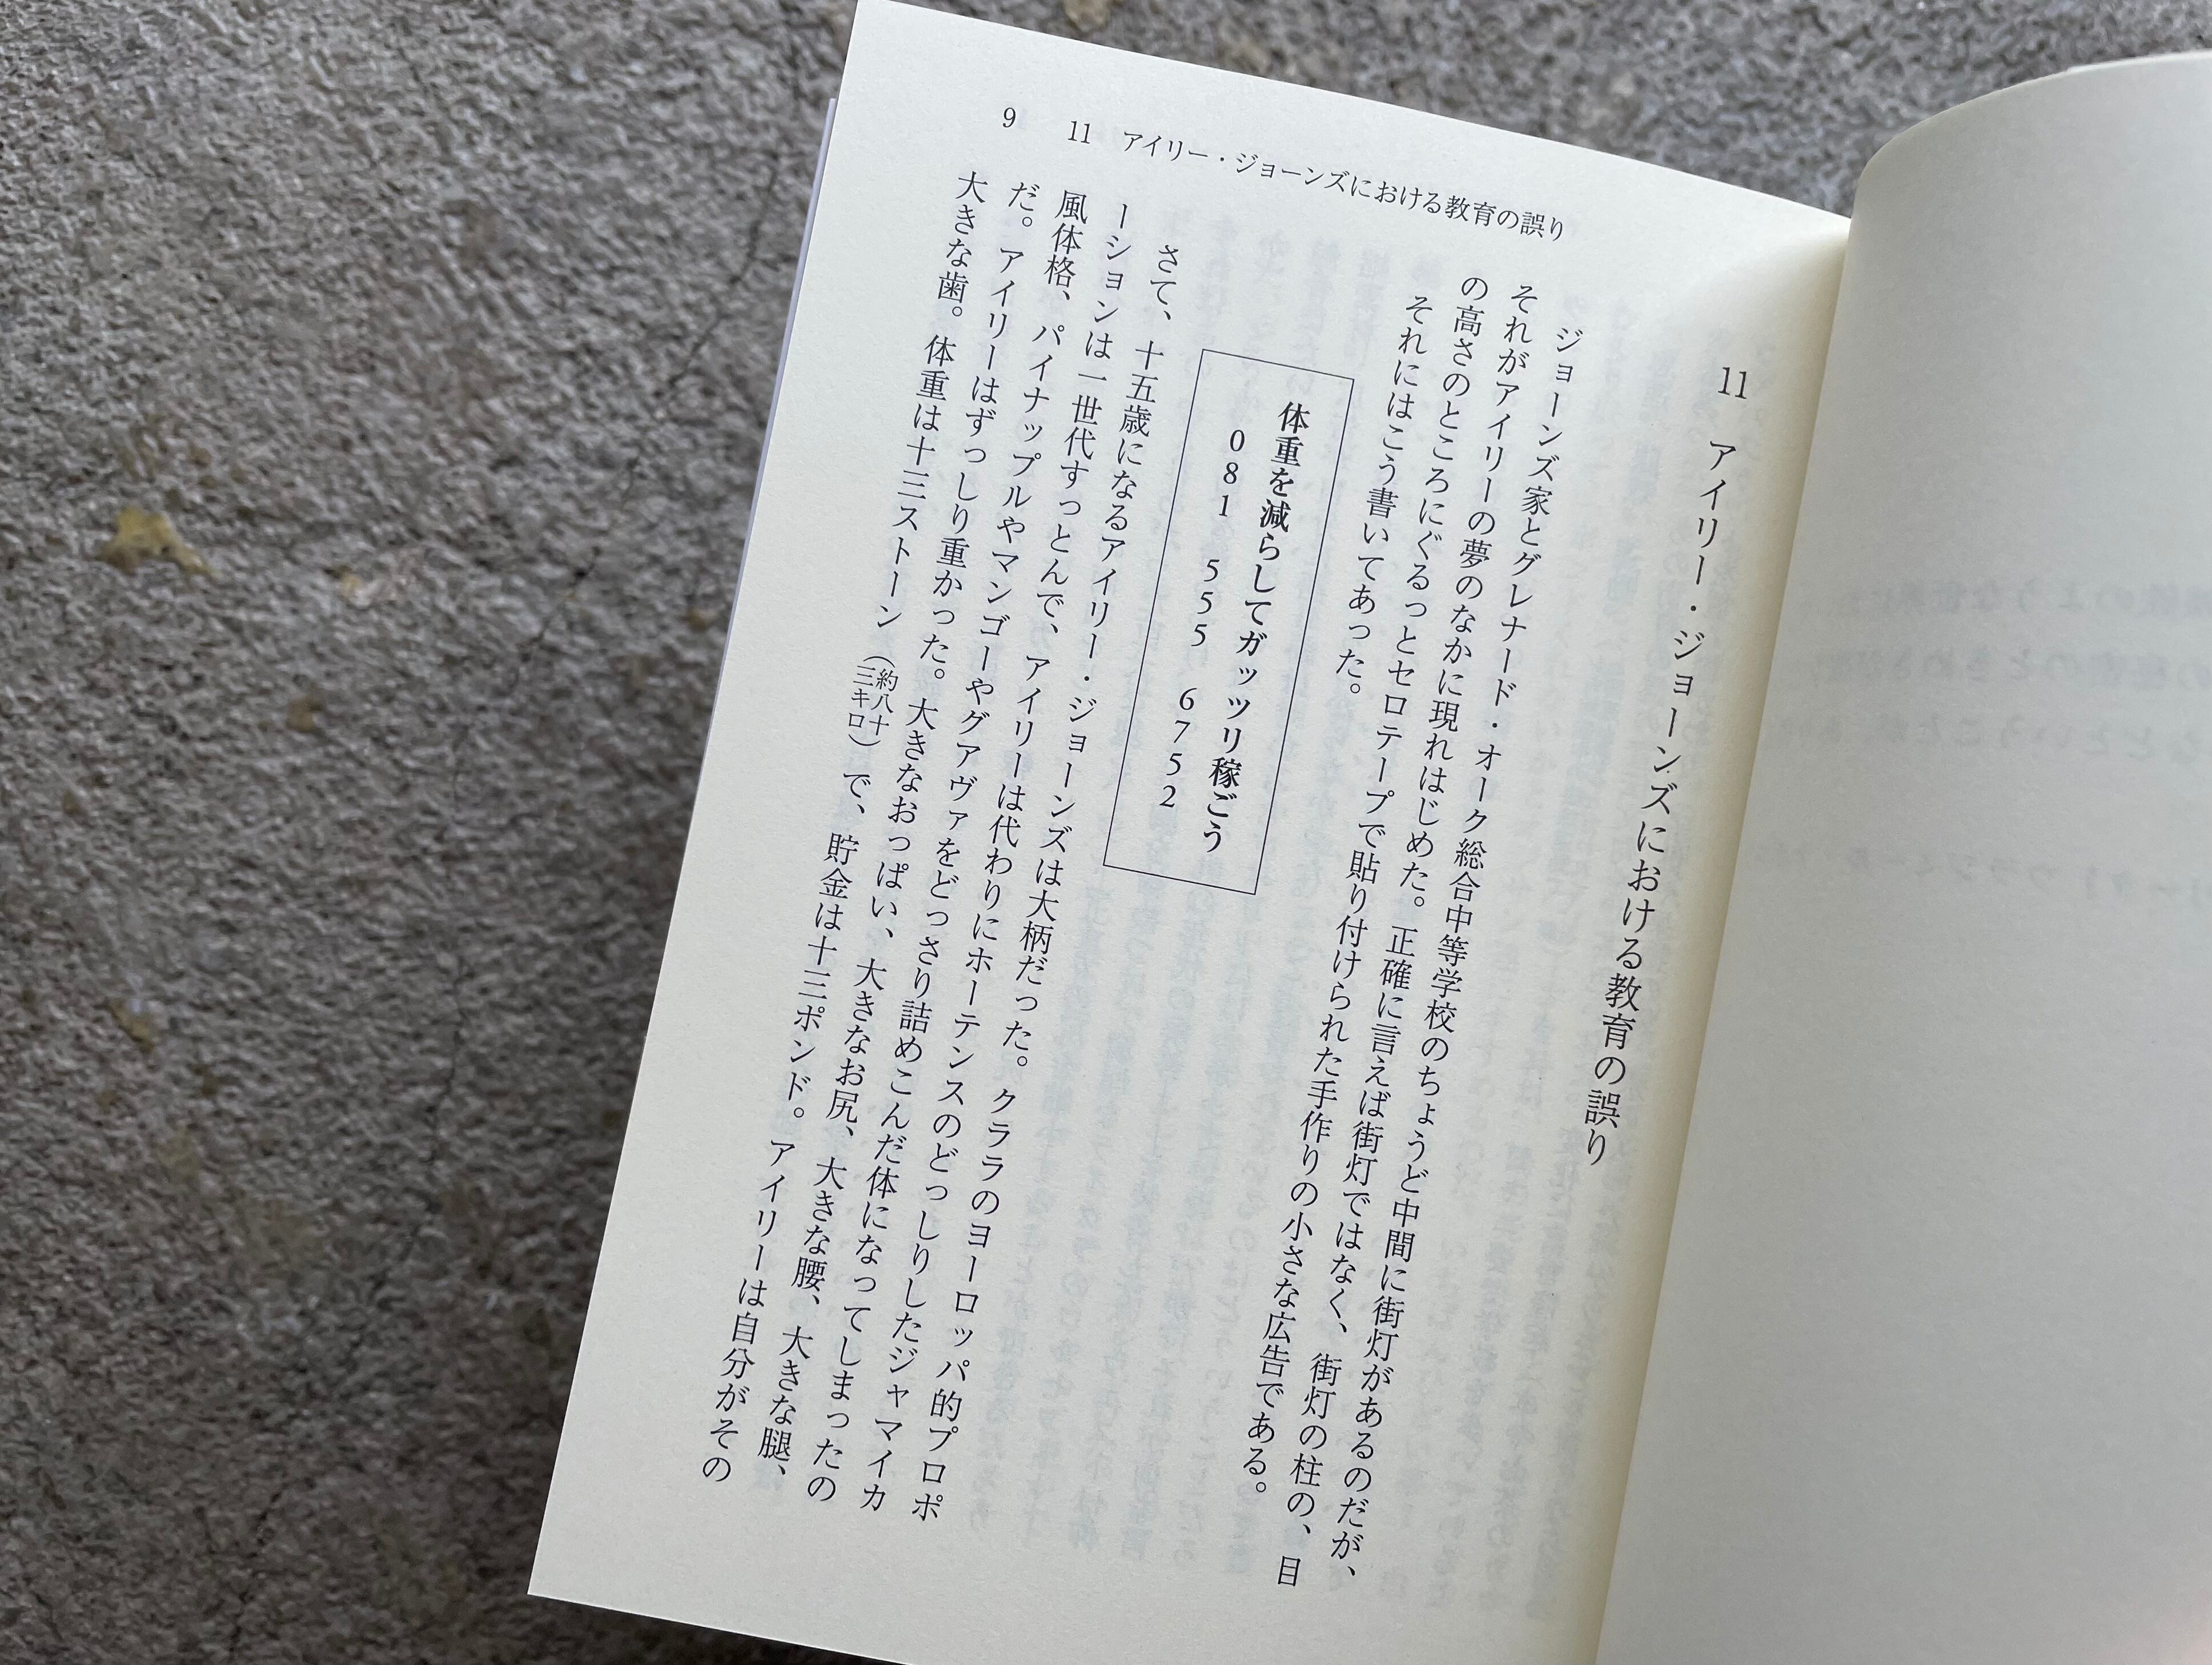 9　11　アイリー・ジョーンズにおける教育の誤り
11　アイリー・ジョーンズにおける教育の誤り
ジョーンズ家とグレナード・オーク総合中等学校のちょうど中間に街灯があるのだが、
それがアイリーの夢のなかに現れはじめた。正確に言えば街灯ではなく、街灯の柱の、目
の高さのところにぐるっとセロテープで貼り付けられた手作りの小さな広告である。
それにはこう書いてあった。
体重を減らしてガッツリ稼ごう
081　555　6752
さて、十五歳になるアイリー・ジョーンズは大柄だった。クララのヨーロッパ的プロポ
ーションは一世代すっとんで、アイリーは代わりにホーテンスのどっしりしたジャマイカ
風体格、パイナップルやマンゴーやグアヴァをどっさり詰めこんだ体になってしまったの
だ。アイリーはずっしり重かった。大きなおっぱい、大きなお尻、大きな腰、大きな腿、
大きな歯。体重は十三ストーン（約八十三キロ）で、貯金は十三ポンド。アイリーは自分がその